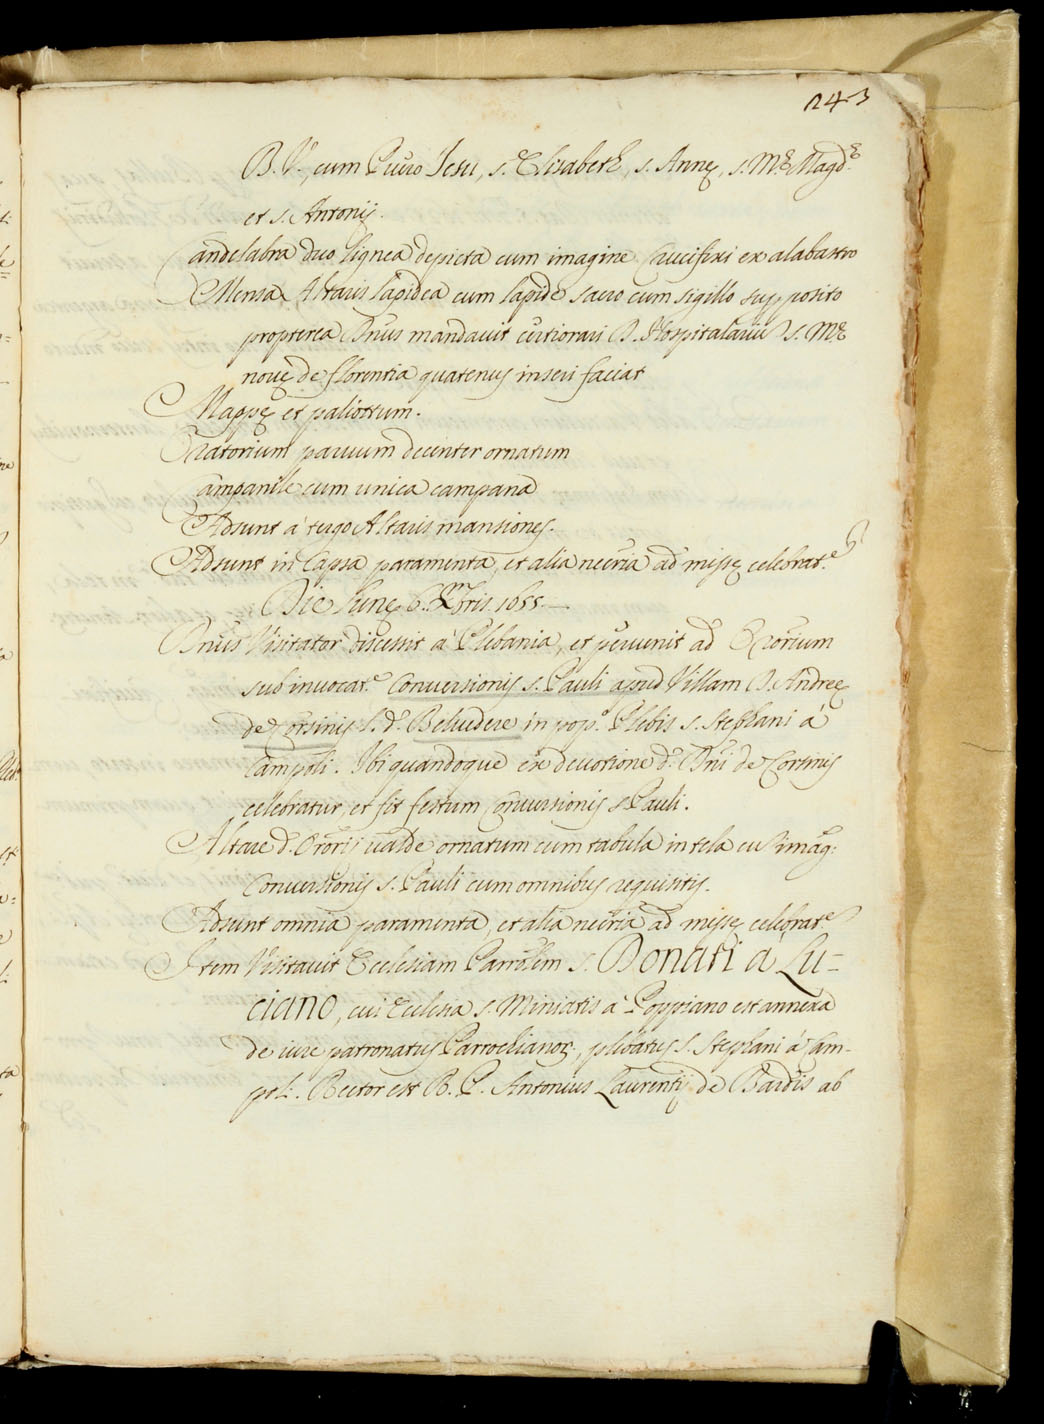 243
B. V., cum Puero Jesu, s. Elisabeth, s. Annę, s. M.ę Magd.ę
et s. Antonij.
Candelabra duo lignea depicta cum imagine Crucifixi ex alabastro
Mensa Altaris lapidea cum lapide sacro cum sigillo supposito
propterea Dnus mandavit certiorari D. Hospitalariũ s. M.ę
novę de florentia quatenus inseri faciat
Mappę et paliottum.
Oratorium parvum decenter ornatum
Campanile cum unica campana
Adsunt à tergo Altaris mansiones.
Adsunt in Capsa paramenta, et alia necria ad missę celebrat.e
Die Lunę 6. Xmbris 1655.—
Dnus Visitator discessit à Plebania, et pervenit ad Ororium
sub invocat.e Conversionis s. Pauli apud Villam D. Andreę
de Corsinis l. d.º Belvedere in pop.º Plebis s. Stephani à
Campoli. Ibi quandoque ex devotione d. Dni de Corsinis
celebratur, et fit festum Conversionis s. Pauli.
Altare d. Ororij valde ornatum cum tabula in tela cũ imag:
Conversionis s. Pauli cum omnibus requisitis.
Adsunt omnia paramenta, et alia necria ad missę celebrat.e
Item Visitavit Ecclesiam Parrolem s. Donati à Lu=
ciano, cui Ecclesia s. Miniatis à Poppiano est annexa
de iure patronatus Parrochianor., plebatus s. Stephani à Cam-
poli. Rector est R. P. Antonius Laurentij de Bardis ab